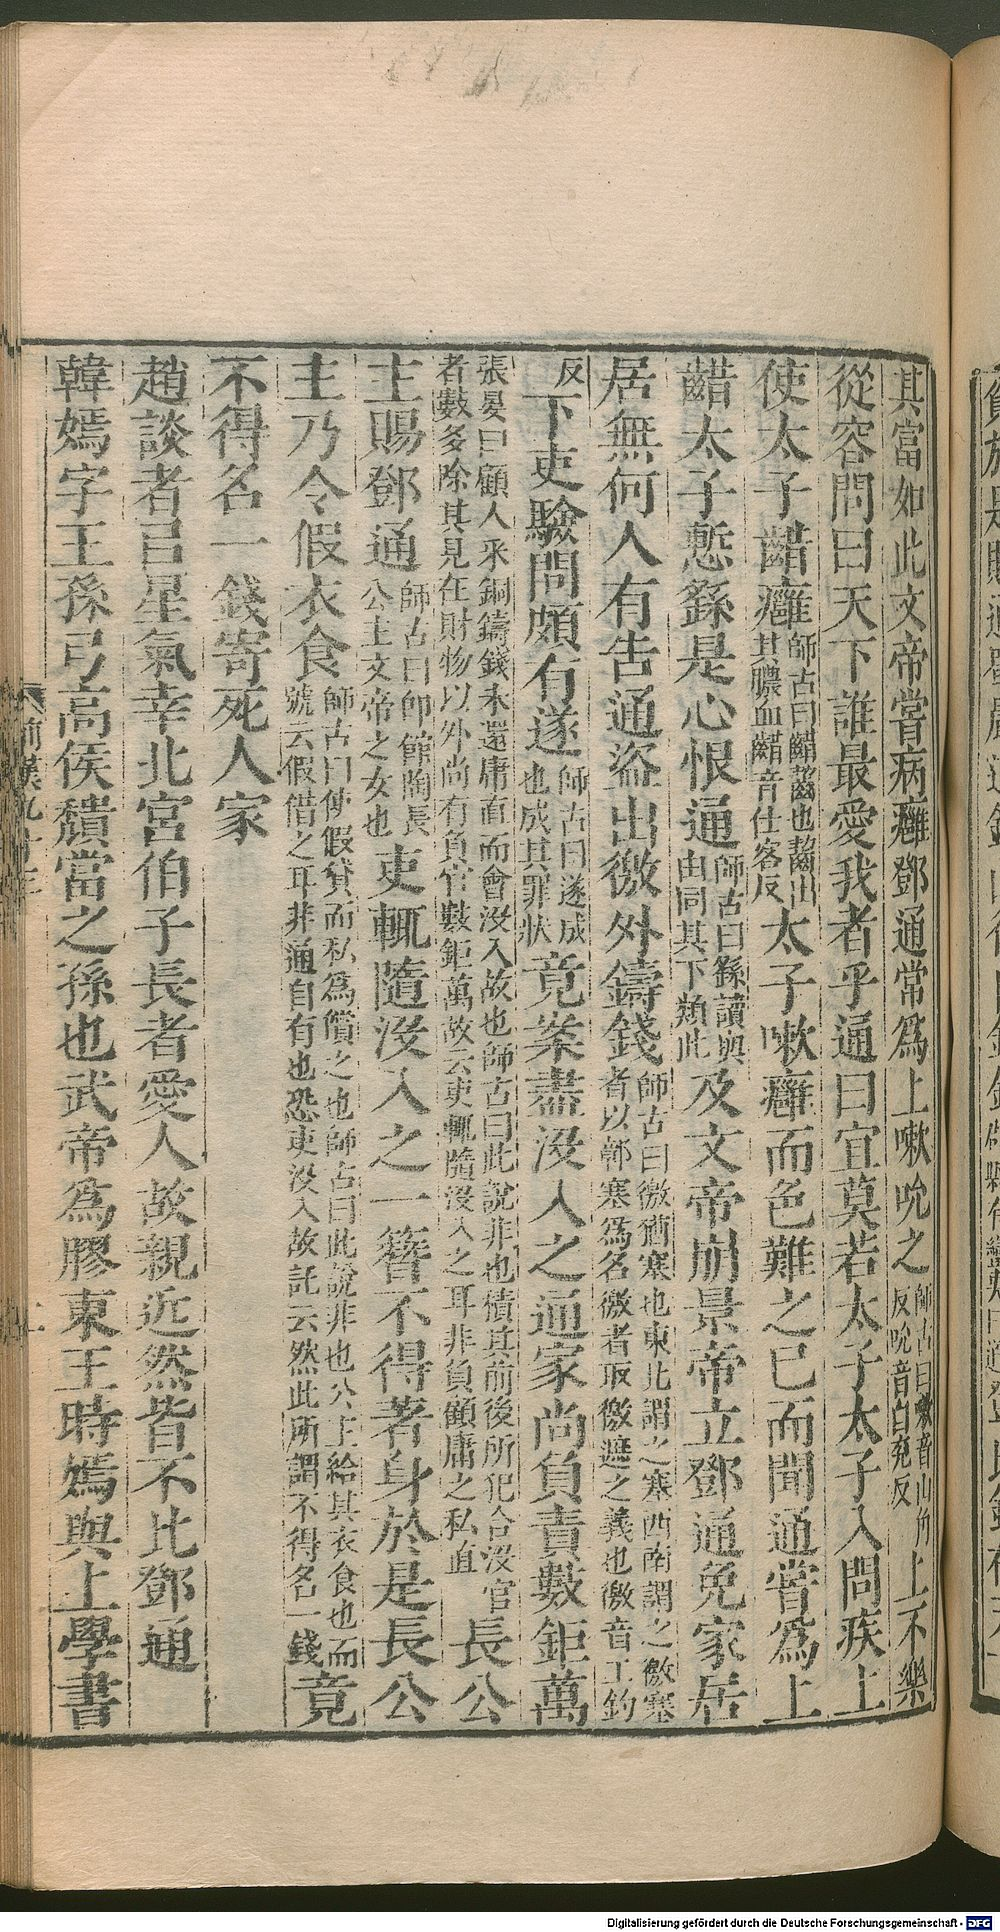 其當如此文帝嘗病癰鄧通常爲上嗽吮之師古曰嗽音山角反吮音自兖反上不樂
從容問曰天下誰最愛我者乎通曰宜莫若太子太子入問疾上
使太子齰癰師古曰齰齧也齧出其膿血齰音仕客反太子嗽癰而色難之已而聞通嘗爲上
齰太子慙繇是心恨通師古曰繇讀與由同其下類此及文帝崩景帝立鄧通免家居
居無何人有告通盜出徼外鑄錢師古曰徼猶塞也東北謂之塞西南謂之徼塞者以鄣塞爲名徼者取徼遮之義也徼音工釣
反下吏驗問頗有遂師古曰遂成也成其罪狀竟案盡没入之通家尚負責數鉅萬
張晏曰顧人采銅鑄錢未還庸直而會没入故也師古曰此說非也積其前後所犯合没官者數多除其見在財物以外尚有負官數鉅萬故云吏輒隨没入之耳非負顧庸之私直長公
主賜鄧通師古曰即館陶長公主文帝之女也吏輒隨没入之一簪不得著身於是長公
主乃令假衣食師古曰使假貸而私爲償之也師古曰此說非也公主給其衣食也而號云假借之耳非通自有也恐吏没入故託云然此所謂不得名一錢竟
不得名一錢寄死人家
趙談者㠯星氣幸北宮伯子長者愛人故親近然皆不比鄧通
韓嫣字王孫弓高侯穨當之孫也武帝爲膠東王時嫣與上學書
前漢九十三
Digitalisierung gefördert durch die Deutsche Forschungsgemeinschaft - DFG